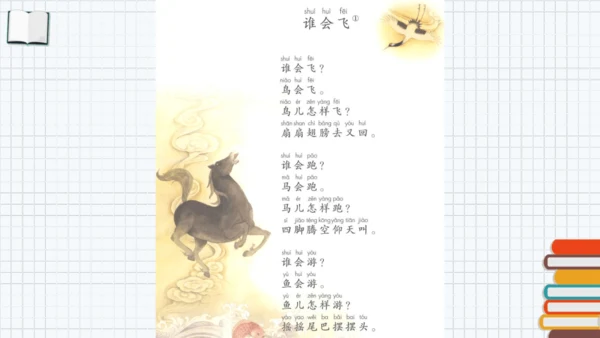 shuí huì fēi
谁会飞①
shuí huì fēi
谁会飞？
niǎo huì fēi
鸟会飞。
niǎo ér zěn yàng fēi
鸟儿怎样飞？
shān shan chì bǎng qù yòu huí
扇扇翅膀去又回。
shuí huì pǎo
谁会跑？
mǎ huì pǎo
马会跑。
mǎ ér zěn yàng pǎo
马儿怎样跑？
sì jiǎo téng kōng yǎng tiān jiào
四脚腾空仰天叫。
shuí huì yóu
谁会游？
yú huì yóu
鱼会游。
yú ér zěn yàng yóu
鱼儿怎样游？
yáo yáo wěi ba bǎi bai tóu
摇摇尾巴摆摆头。